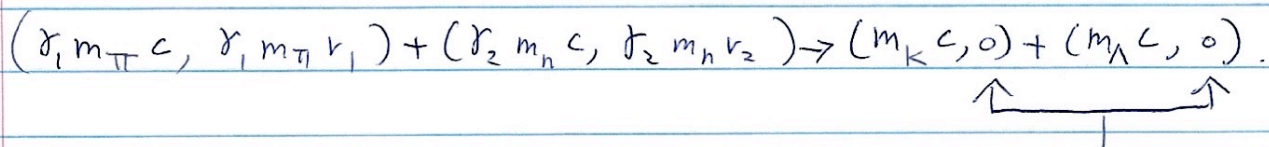 (γ₁ m_π c, γ₁ m_π v₁) + (γ₂ m_n c, γ₂ m_n v₂) → (m_K c, 0) + (m_Λ c, 0).